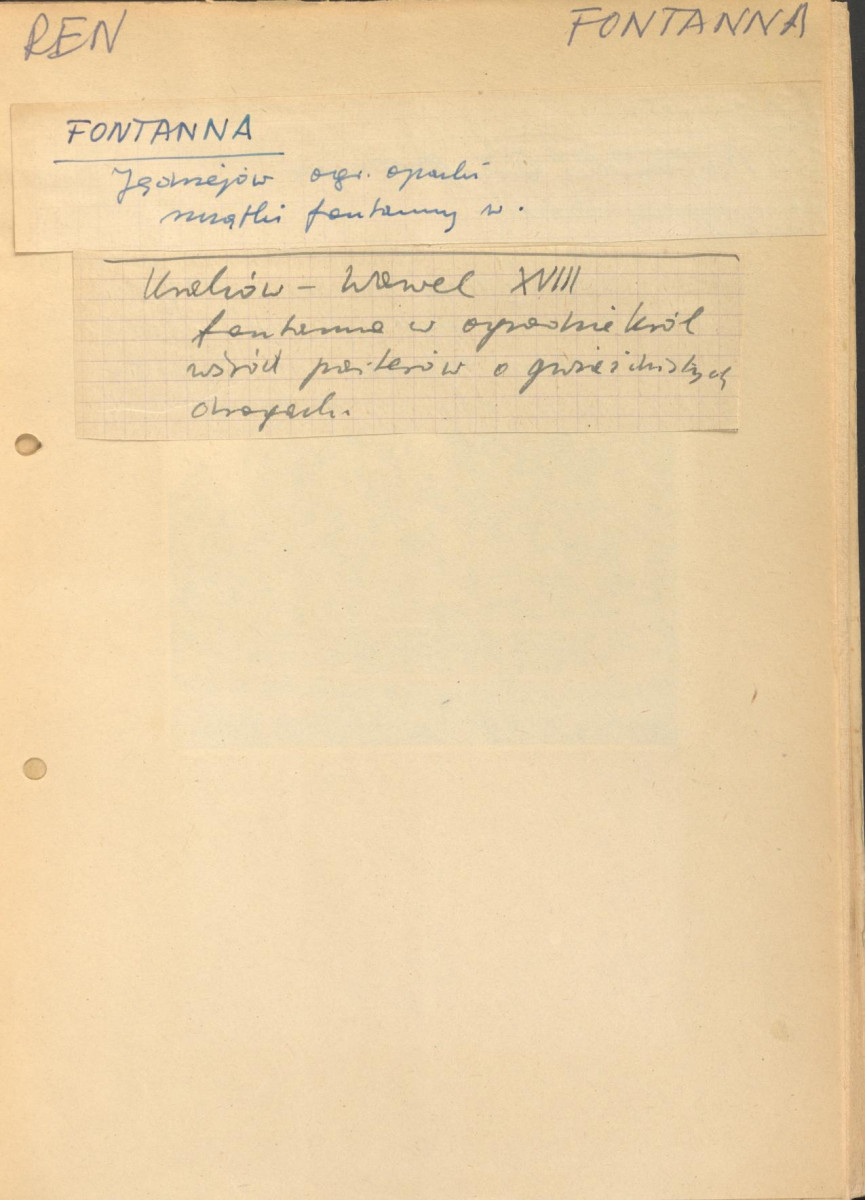 REN FONTANNA
FONTANNA
Jędrzejów ogr. opacki
szczątki fontanny w.
Kraków – Wawel XVIII
fontanna w ogrodzie król
wśród parterów o gwiaździstych
drogach.